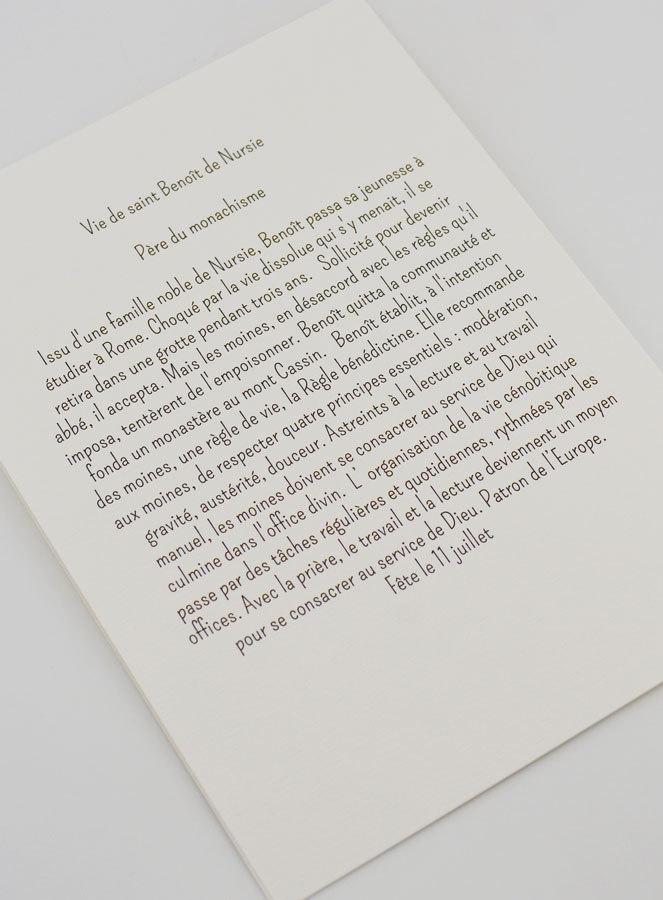 Vie de saint Benoît de Nursie
Père du monachisme
Issu d'une famille noble de Nursie, Benoît passa sa jeunesse à
étudier à Rome. Choqué par la vie dissolue qui s'y menait, il se
retira dans une grotte pendant trois ans. Sollicité pour devenir
abbé, il accepta. Mais les moines, en désaccord avec les règles qu'il
imposa, tentèrent de l'empoisonner. Benoît quitta la communauté et
fonda un monastère au mont Cassin. Benoît établit, à l'intention
des moines, une règle de vie, la Règle bénédictine. Elle recommande
aux moines, de respecter quatre principes essentiels : modération,
gravité, austérité, douceur. Astreints à la lecture et au travail
manuel, les moines doivent se consacrer au service de Dieu qui
culmine dans l'office divin. L' organisation de la vie cénobitique
passe par des tâches régulières et quotidiennes, rythmées par les
offices. Avec la prière, le travail et la lecture deviennent un moyen
pour se consacrer au service de Dieu. Patron de l'Europe.
Fête le 11 juillet